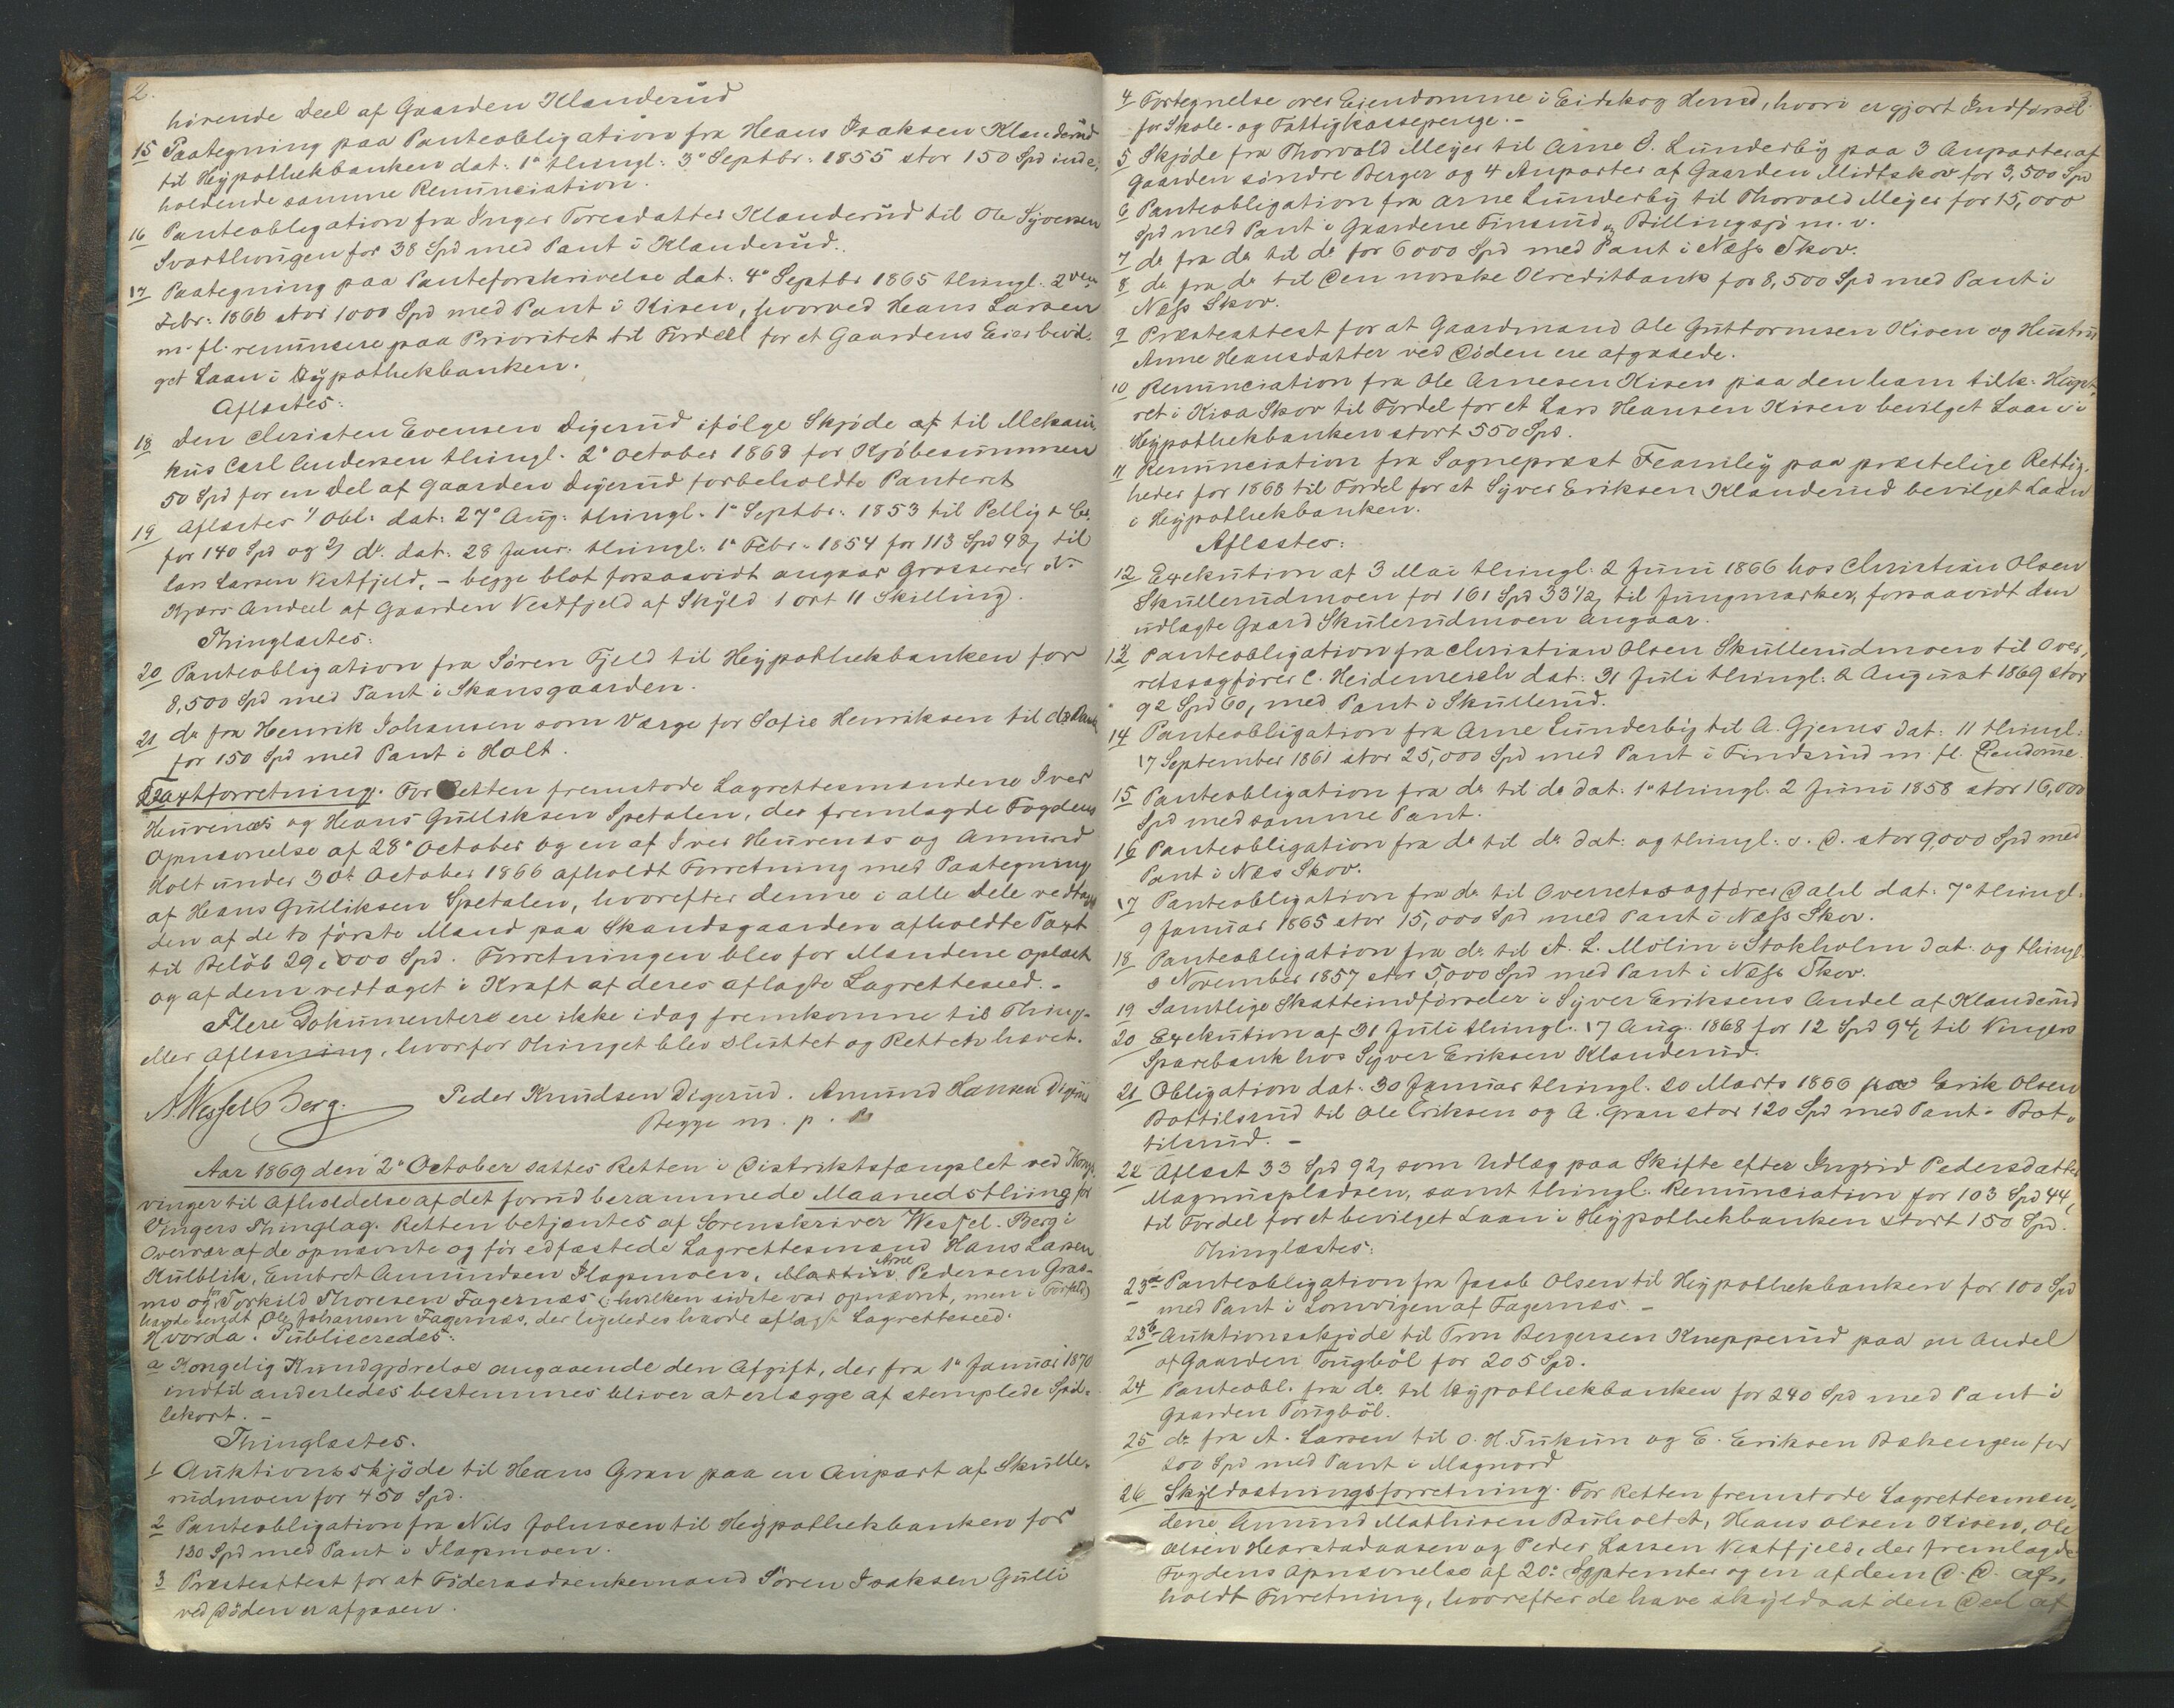 2.
hörende Deel af Gaarden Klanderud
15 Paategning paa Panteobligation fra Hans Isaksen Klanderud
til Hypothekbanken dat: 1º thingl: 3º Septbr: 1855 stor 150 Spd inde-
holdende samme Renunciation.
16 Panteobligation fra Inger Toresdatter Klanderud til Ole Syversen
Svarthungen for 38 Spd med Pant i Klanderud.
17 Paategning paa Panteforskrivelse dat: 4º Septbr 1865 thingl. 2den
Febr: 1866 stor 1000 Spd med Pant i Kisen, hvorved Hans Larsen
m. fl. renuncere paa Prioritet til Fordel for et Gaardens Eier bevil-
get Laan i Hypothekbanken.
Aflæstes:
18 Den Christen Evensen Digerud ifölge Skjöde af til Mekani-
kus Carl Andersen thingl. 2º October 1868 for Kjöbesummen
50 Spd for en Del af Gaarden Digerud forbeholdte Panteret
19 Aflæstes 1) Obl: dat: 27º Aug: thingl. 1º Septbr: 1853 til Pellig & Co.
for 140 Spd og 2) do. dat: 28 Janr: thingl: 1º Febr. 1854 for 113 Spd 48, til
Lars Larsen Vestfjeld. – begge blot forsaavidt angaar Grosserer N.
Kjærs Andeel af Gaarden Vestfjeld af Skyld 1 ort 11 Skilling.
Thinglæstes:
20 Panteobligation fra Sören Fjeld til Hypothekbanken for
8,500 Spd med Pant i Skansgaarden.
21 do fra Henrik Johansen som Værge for Sofie Henriksen til do Bank
for 150 Spd med Pant i Holt.
22 Taxtforretning. For Retten fremstode Lagrettesmændene Iver
Heurenæs og Hans Gulliksen Spetalen, der fremlagde Fogdens
Opnævnelse af 28º October og en af Iver Heurenæs og Amund
Holt under 30te October 1866 afholdt Forretning med Paategning
af Hans Gulliksen Spetalen, hvorefter denne i alle Dele vedtager
den af de to förste Mænd paa Skandsgaarden afholdte Taxt
til Belöb 29,000 Spd. Forretningen blev for Mændene oplæst
og af dem vedtaget i Kraft af deres aflagte Lagretteseed. –
Flere Dokumenter ere ikke idag fremkomne til Thing-
eller Aflæsning, hvorfor Thinget blev sluttet og Retten hævet.
A. Wessel Berg. Peder Knudsen Digerud. Amund Hansen Digerud
Begge m. p. P.
Aar 1869 den 2º October sattes Retten i Distriktsfængslet ved Kongs-
vinger til Afholdelse af det forud berammede Maanedsthing for
Vingers Thinglag. Retten betjentes af Sorenskriver Wessel-Berg i
Overvær af de opnævnte og för edfæstede Lagrettesmænd Hans Larsen
Kulblik, Embret Amundsen Slagsmoen, Martin Arne Pedersen Græs-
mo og Torkild Thoresen Fagernæs (: hvilken sidste var opnævnt, men i Forfald:)
havde sendt Ole Johansen Fagernæs, der ligeledes havde aflagt Lagretteseed.
Hvorda: Publiceredes:
a Kongelig Kundgjörelse angaaende den Afgift, der fra 1º Januar 1870
indtil anderledes bestemmes bliver at erlægge af stemplede Spil-
lekort. –
Thinglæstes.
1 Auktionsskjöde til Hans Gran paa en Anpart af Skulle-
rudmoen for 450 Spd.
2 Panteobligation fra Nils Johnsen til Hypothekbanken for
130 Spd med Pant i Slagsmoen.
3 Præsteattest for at Föderaadsenkemand Sören Isaksen Gulli
ved Döden er afgaaen.
4 Fortegnelse over Eiendomme i Eidskog Herred, hvori er gjort Indførsel
for Skole- og Fattigkassepenge. –
5 Skjöde fra Thorvald Meyer til Arne O. Lunderby paa 3 Anparter af
Gaarden söndre Berger og 4 Anparter af Gaarden Midtskov for 3,500 Spd
6 Panteobligation fra Arne Lunderby til Thorvald Meyer for 15,000
Spd med Pant i Gaardene Finsrud, Billingsjö m. v.
7 do fra do til do for 6000 Spd med Pant i Næss Skov.
8 do fra do til Den norske Kreditbank for 8,500 Spd med Pant i
Næss Skov.
9 Præsteattest for at Gaardmand Ole Guttormsen Kisen og Hustru
Anne Hansdatter ved Döden ere afgaaede.
10 Renunciation fra Ole Arnesen Kisen paa den ham tilk: Hugst-
ret i Kisa Skov til Fordel for et Lars Hansen Kisen bevilget Laan i
Hypothekbanken stort 550 Spd.
11 Renunciation fra Sognepræst Fearnley paa præstelige Rettig-
heder for 1868 til Fordel for et Syver Eriksen Klanderud bevilget Laan
i Hypothekbanken.
Aflæstes:
12 Exekution af 3 Mai thingl: 2 Juni 1866 hos Christian Olsen
Skullerudmoen for 161 Spd 33½, til Jungmarker, forsaavidt den
udlagte Gaard Skulerudmoen angaar.
13 Panteobligation fra Christian Olsen Skullerudmoen til Over-
retssagförer C. Heidenreich dat: 31 Juli thingl: 2 August 1869 stor
92 Spd 60, med Pant i Skullerud.
14 Panteobligation fra Arne Lunderby til A. Gjems dat: 11 thingl:
17 September 1861 stor 25,000 Spd med Pant i Findsrud m. fl. Eiendomme.
15 Panteobligation fra do til do dat: 1º thingl: 2 Juni 1858 stor 16,000
Spd med samme Pant.
16 Panteobligation fra do til do dat: og thingl: s. D. stor 9,000 Spd med
Pant i Næs Skov.
17 Panteobligation fra do til Overretssagförer Dahl dat: 7º thingl.
9 Januar 1865 stor 15,000 Spd med Pant i Næss Skov.
18 Panteobligation fra do til A. L. Molin i Stokholm dat: og thingl:
2 November 1857 stor 5,000 Spd med Pant i Næss Skov.
19 Samtlige Skatteindförsler i Syver Eriksens Andel af Klanderud
20 Exekution af 31 Juli thingl. 17 Aug. 1868 for 12 Spd 94, til Vingers
Sparebank hos Syver Eriksen Klanderud.
21 Obligation dat: 30 Januar thingl. 20 Marts 1866 fra Erik Olsen
Bottilsrud til Ole Eriksen og A. Gran stor 120 Spd med Pant i Bot-
tilsrud. –
22 Aflæst 33 Spd 92, som Udlæg paa Skifte efter Ingrid Pedersdatter
Magnuspladsen, samt thingl. Renunciation for 103 Spd 44,
til Fordel for et bevilget Laan i Hypothekbanken stort 150 Spd.
Thinglæstes:
23a Panteobligation fra Jacob Olsen til Hypothekbanken for 100 Spd
med Pant i Lomvigen af Fagernæs –
23b Auktionsskjöde til Tron Bergersen Knapperud paa en Andel
af Gaarden Tougböl for 205 Spd.
24 Panteobl. fra do. til Hypothekbanken for 240 Spd med Pant i
Gaarden Tougböl.
25 do fra A. Larsen til O. H. Tukun og E. Eriksen Bækengen for
200 Spd med Pant i Magnord
26 Skyldsætningsforretning. For Retten fremstode Lagrettesmæn-
dene Amund Mathisen Buholtet, Hans Olsen Kisen, Ole
Olsen Harstadaasen og Peder Larsen Vestfjeld, der fremlagde
Fogdens Opnævnelse af 20: September og en af dem D. D. af-
holdt Forretning, hvorefter de have skyldsat den Deel af